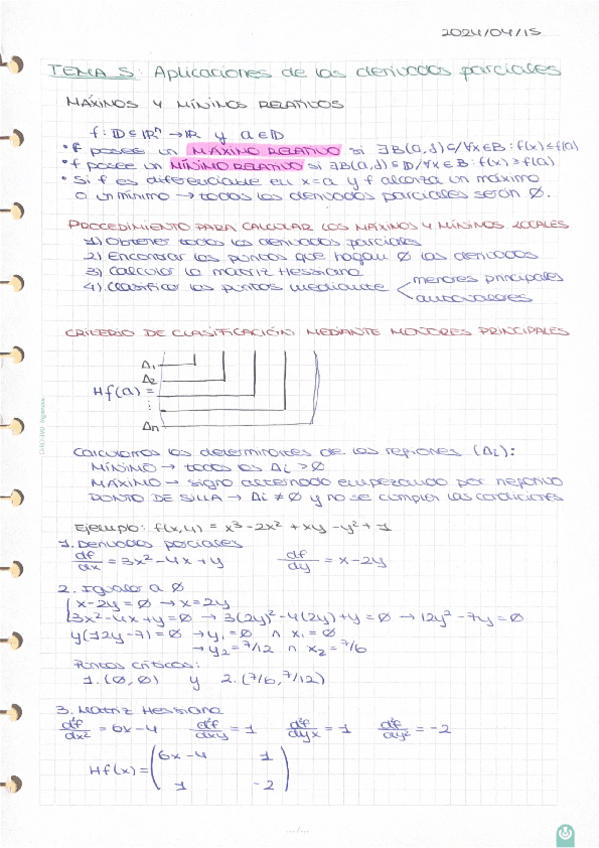 2024/04/15
TEMA 5: Aplicaciones de las derivadas parciales
MÁXIMOS Y MÍNIMOS RELATIVOS
f: D ⊆ ℝⁿ → ℝ y a ∈ D
• f posee un MÁXIMO RELATIVO si ∃B(a,δ) ⊆/∀x∈B: f(x) ≤ f(a)
• f posee un MÍNIMO RELATIVO si ∃B(a,δ) ⊆ D/∀x∈B: f(x) ≥ f(a)
• Si f es diferenciable en x=a y f alcanza un máximo
o un mínimo → todas las derivadas parciales serán Ø.
PROCEDIMIENTO PARA CALCULAR LOS MÁXIMOS Y MÍNIMOS LOCALES
1) Obtener todas las derivadas parciales
2) Encontrar los puntos que hagan Ø las derivadas
3) Calcular la matriz Hessiana
4) Clasificar los puntos mediante < menores principales
autovalores
CRITERIO DE CLASIFICACIÓN MEDIANTE MENORES PRINCIPALES
Δ₁
Δ₂
Hf(a) =
⋮
Δn
Calculamos los determinantes de las regiones (Δi):
MÍNIMO → todos los Δi > Ø
MÁXIMO → signo alternado empezando por negativo
PUNTO DE SILLA → Δi ≠ Ø y no se cumplen las condiciones
Ejemplo: f(x,y) = x³ - 2x² + xy - y² + 1
1. Derivadas parciales
df/dx = 3x² - 4x + y df/dy = x - 2y
2. Igualar a Ø
{x - 2y = Ø → x = 2y
{3x² - 4x + y = Ø → 3(2y)² - 4(2y) + y = Ø → 12y² - 7y = Ø
y(12y - 7) = Ø → y₁ = Ø ∩ x₁ = Ø
→ y₂ = 7/12 ∩ x₂ = 7/6
Puntos críticos:
1. (Ø, Ø) y 2. (7/6, 7/12)
3. Matriz Hessiana
d²f/dx² = 6x - 4 d²f/dxy = 1 d²f/dyx = 1 d²f/dy² = -2
Hf(x) = (6x - 4 1
1 -2)
.../...